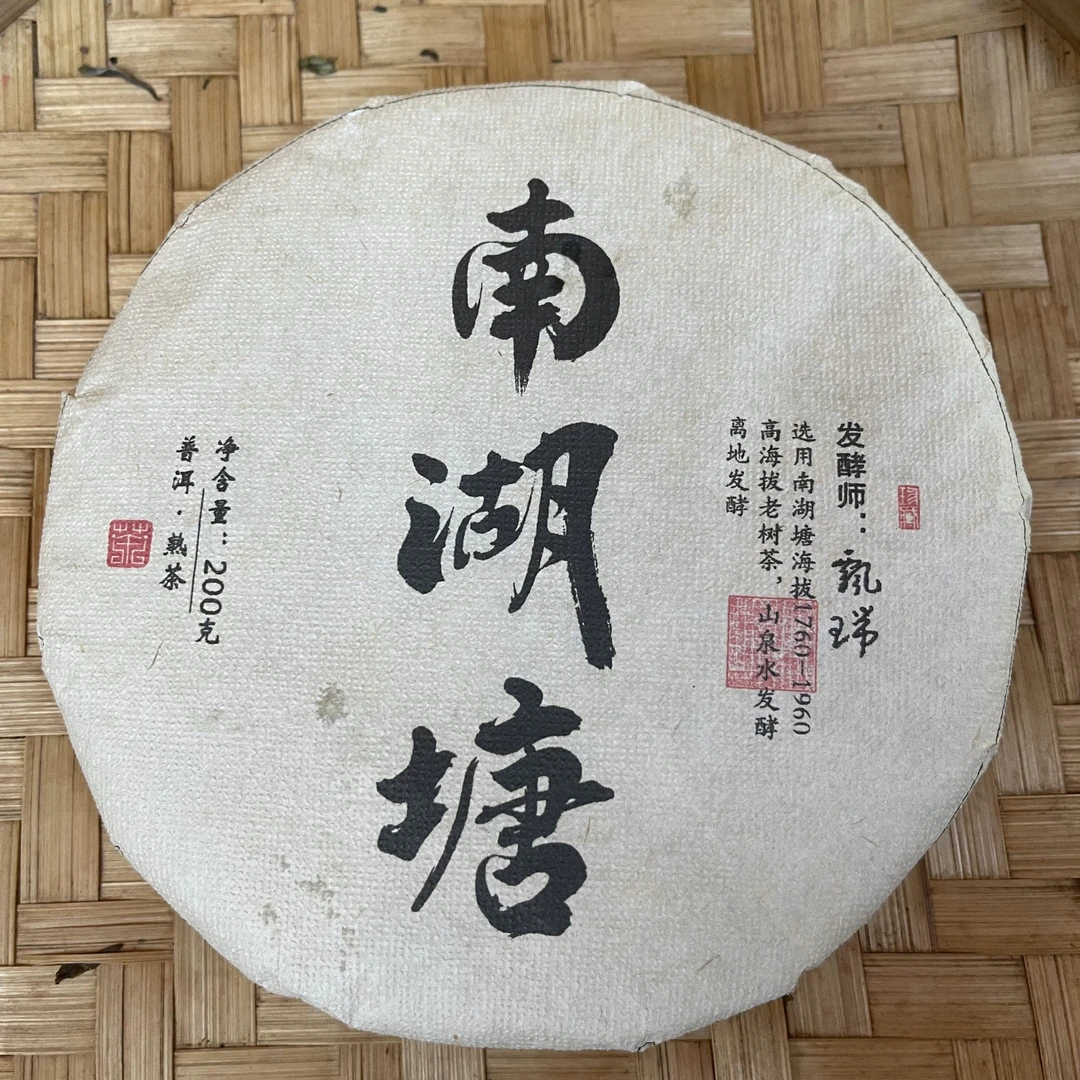 发酵师：甎瑞
选用南湖塘海拔1760-1960
高海拔老树茶，山泉水发酵
离地发酵
南湖塘
净含量：200克
普洱·熟茶
茶